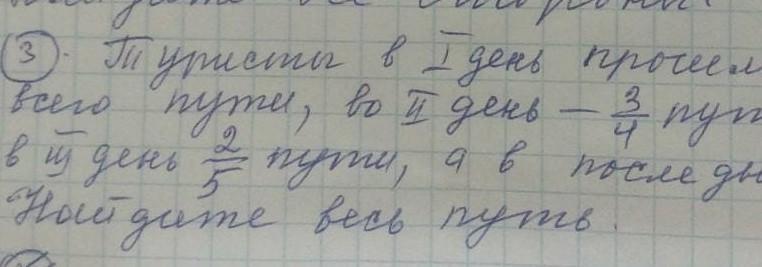 3. Туристы в I день прошл
всего пути, во II день – 3/4 пут
в III день 2/5 пути, а в последн
Найдите весь путь.